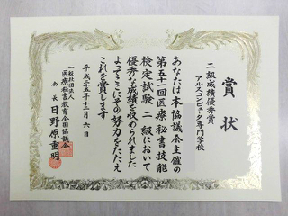 賞状
二級成績優秀賞
アルスコンピュータ専門学校
あなたは本協議会主催の
第五十一回医療秘書技能
検定試験二級において
優秀な成績を収められました
よってここにその努力をたたえ
これを賞します
平成二五年十二月六日
一般社団法人
医療秘書教育全国協議会
会長 日野原重明